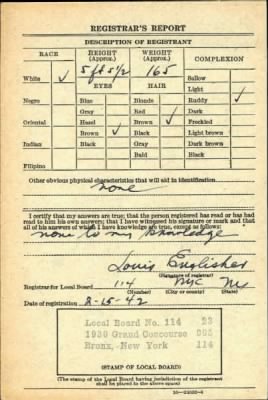 REGISTRAR'S REPORT
DESCRIPTION OF REGISTRANT
RACE HEIGHT (Approx.) WEIGHT (Approx.) COMPLEXION
White ✓ 5 ft 5 1/2 165 Sallow
EYES HAIR Light
Negro Blue Blonde Ruddy ✓
Gray Red ✓ Dark
Oriental Hazel Brown Freckled
Brown ✓ Black Light brown
Indian Black Gray Dark brown
Bald Black
Filipino
Other obvious physical characteristics that will aid in identification
none
I certify that my answers are true; that the person registered has read or has had
read to him his own answers; that I have witnessed his signature or mark and that
all of his answers of which I have knowledge are true, except as follows:
none to my knowledge
Louis Englisher
(Signature of registrar)
Registrar for Local Board 114 NYC NY
(Number) (City or county) (State)
Date of registration 2-15-42
Local Board No. 114 23
1930 Grand Concourse 005
Bronx, New York 114
(STAMP OF LOCAL BOARD)
(The stamp of the Local Board having jurisdiction of the registrant
shall be placed in the above space)